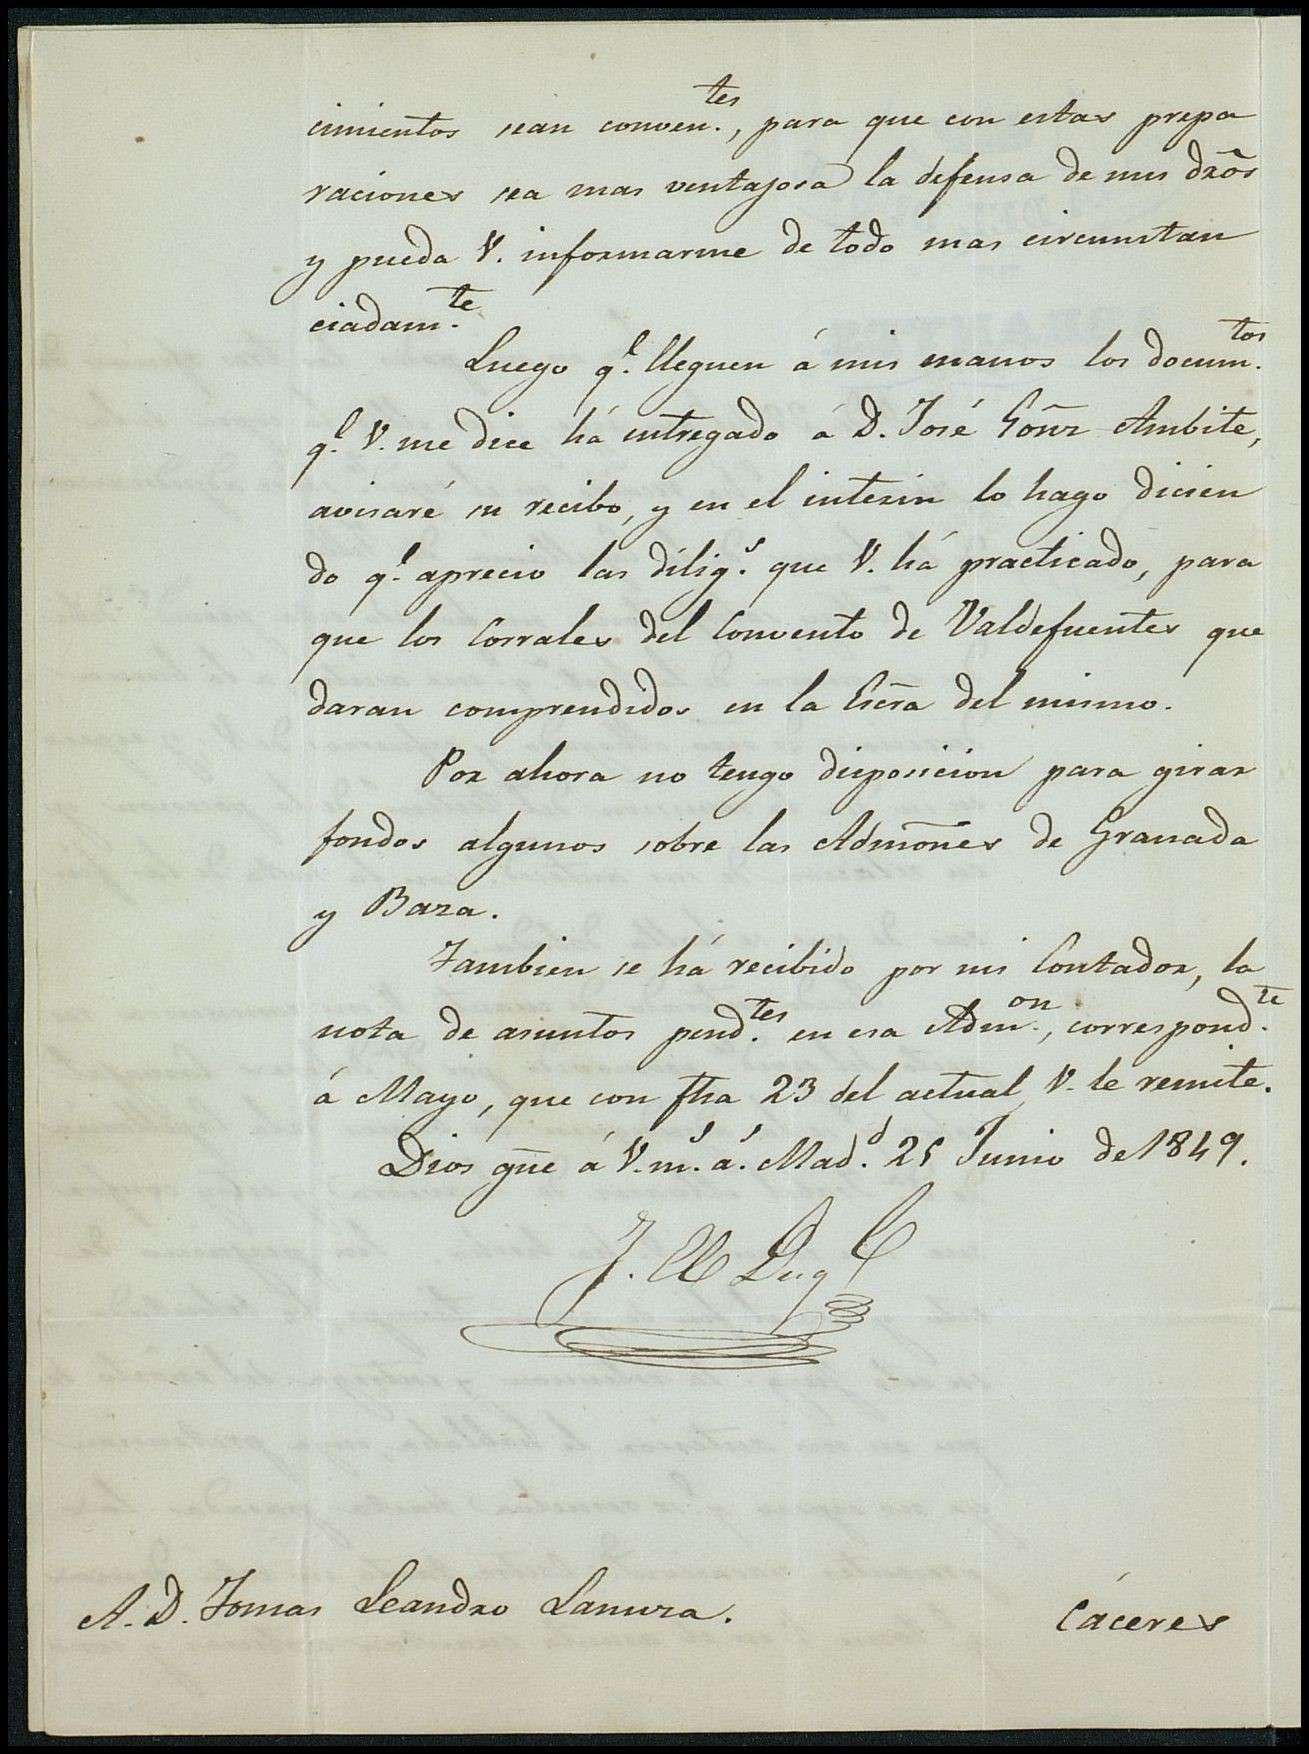 cimientos sean conven.tes, para que con estas prepa
raciones sea mas ventajosa la defensa de mis dr̃os
y pueda V. informarme de todo mas circunstan
ciadam.te
Luego q.e lleguen á mis manos los docum.tos
q.e V. me dice há entregado á D. José Gonz̃ Ambite,
avisaré su recibo, y en el interin lo hago dicien
do q.e aprecio las dilig.s que V. há practicado, para
que los Corrales del Convento de Valdefuentes que
daran comprendidos en la Escr̃a del mismo.
Por ahora no tengo disposicion para girar
fondos algunos sobre las Admoñes de Granada
y Baza.
Tambien se há recibido por mi Contador, la
nota de asuntos pend.tes en esa Adm.on, correspond.te
á Mayo, que con fha 23 del actual V. le remite.
Dios gũe á V. m.s a.s Mad.d 25 Junio de 1849.
A. D. Tomas Leandro Lanuza.
Cáceres